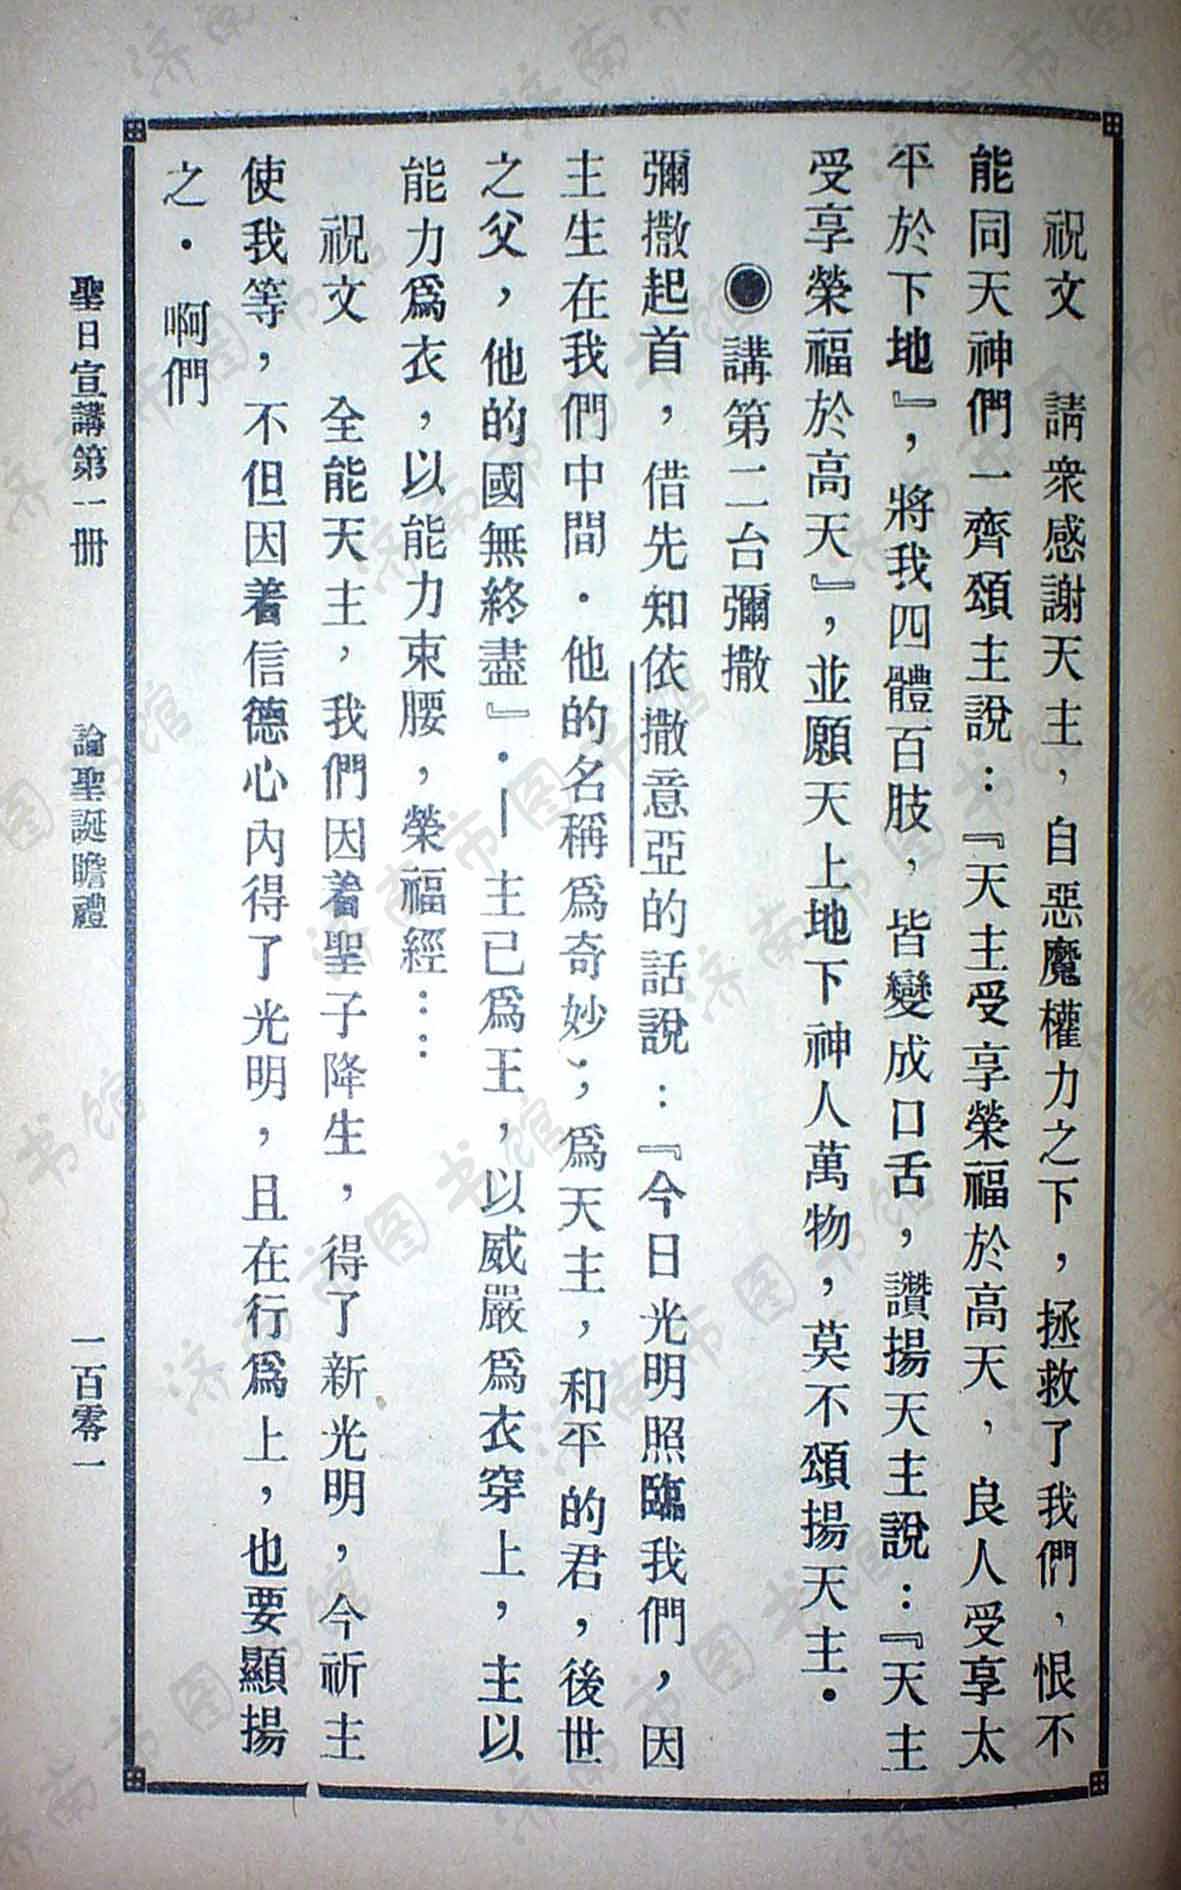 祝文　請衆感謝天主，自惡魔權力之下，拯救了我們，恨不
能同天神們一齊頌主說：『天主受享榮福於高天，良人受享太
平於下地』，將我四體百肢，皆變成口舌，讚揚天主說：『天主
受享榮福於高天』，並願天上地下神人萬物，莫不頌揚天主．
◉講第二台彌撒
彌撒起首，借先知依撒意亞的話說：『今日光明照臨我們，因
主生在我們中間．他的名稱爲奇妙；爲天主，和平的君，後世
之父，他的國無終盡』．—主已爲王，以威嚴爲衣穿上，主以
能力爲衣，以能力束腰，榮福經……
祝文　全能天主，我們因着聖子降生，得了新光明，今祈主
使我等，不但因着信德心內得了光明，且在行爲上，也要顯揚
之．啊們
聖日宣講第一冊　論聖誕瞻禮　一百零一
济南市图书馆